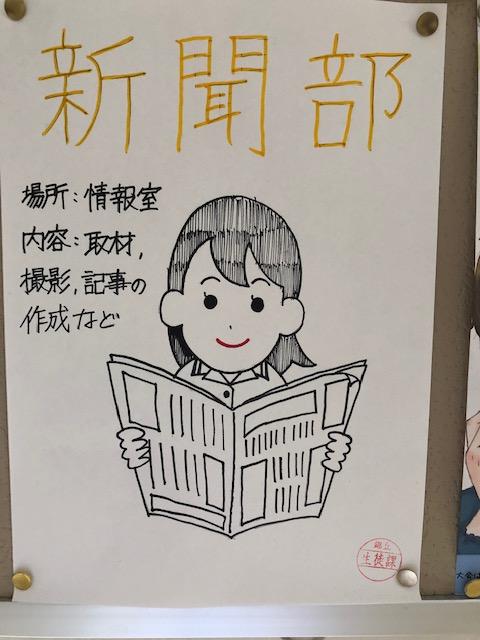 新聞部
場所:情報室
内容:取材,
撮影,記事の
作成など
生徒課
大会は